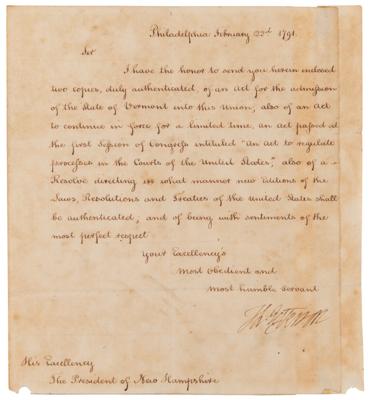 Philadelphia February 22d 1791.
Sir
I have the honor to send you herein enclosed
two copies, duly authenticated, of an Act for the admission
of the State of Vermont into this Union, also of an Act
to continue in force for a limited time, an act passed at
the first Session of Congress intituled "an Act to regulate
processes in the Courts of the United States", also of a
Resolve directing in what manner new Editions of the
Laws, Resolutions and Treaties of the United States shall
be authenticated, and of being with sentiments of the
most perfect respect
Your Excellency's
Most Obedient and
most humble servant
Th: Jefferson
His Excellency
The President of New Hampshire